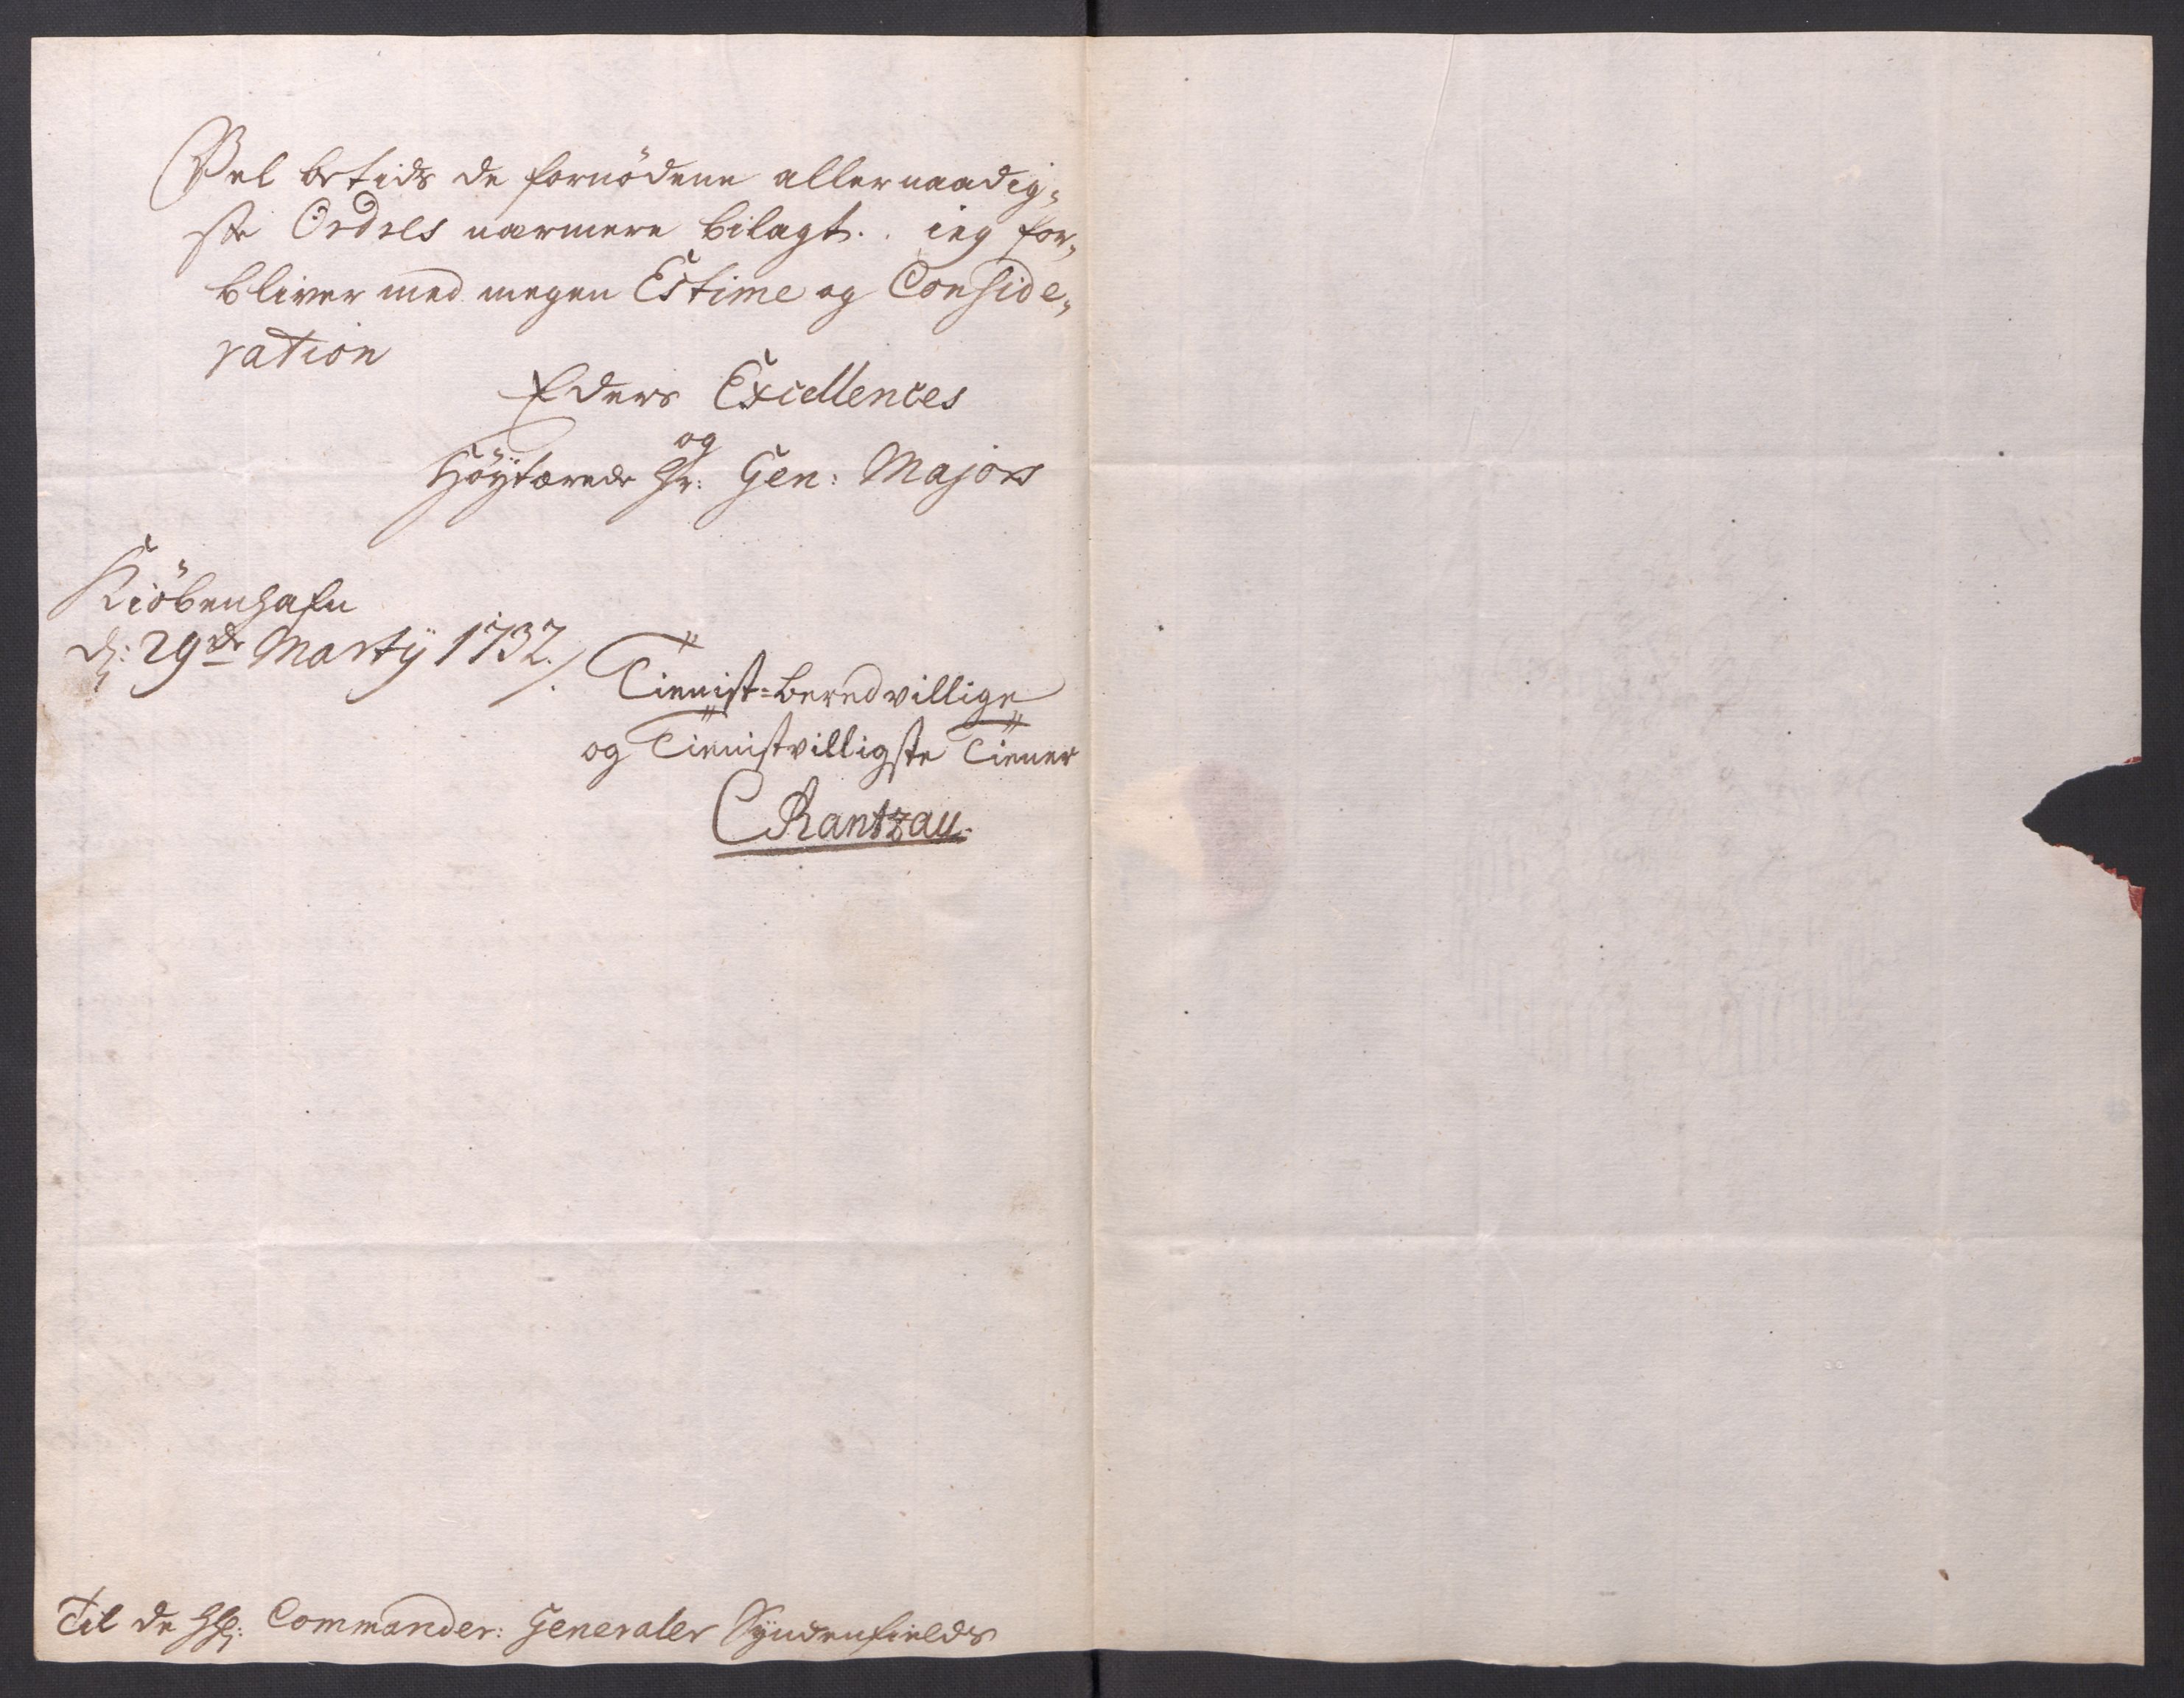 Vel betids de fornödene allernaadig¬
ste Ordres nærmere bilagt. ieg for¬
bliver med megen Estime og Conside¬
ration
Eders Excellences
og
Höÿtærede Hr: Gen: Majors
Kiöbenhafn
d: 29de Martÿ 1732./.
Tienist-beredvillige
og Tienistvilligste Tiener
CRantzau.
Til de HH: Commander: Generaler Syndenfields